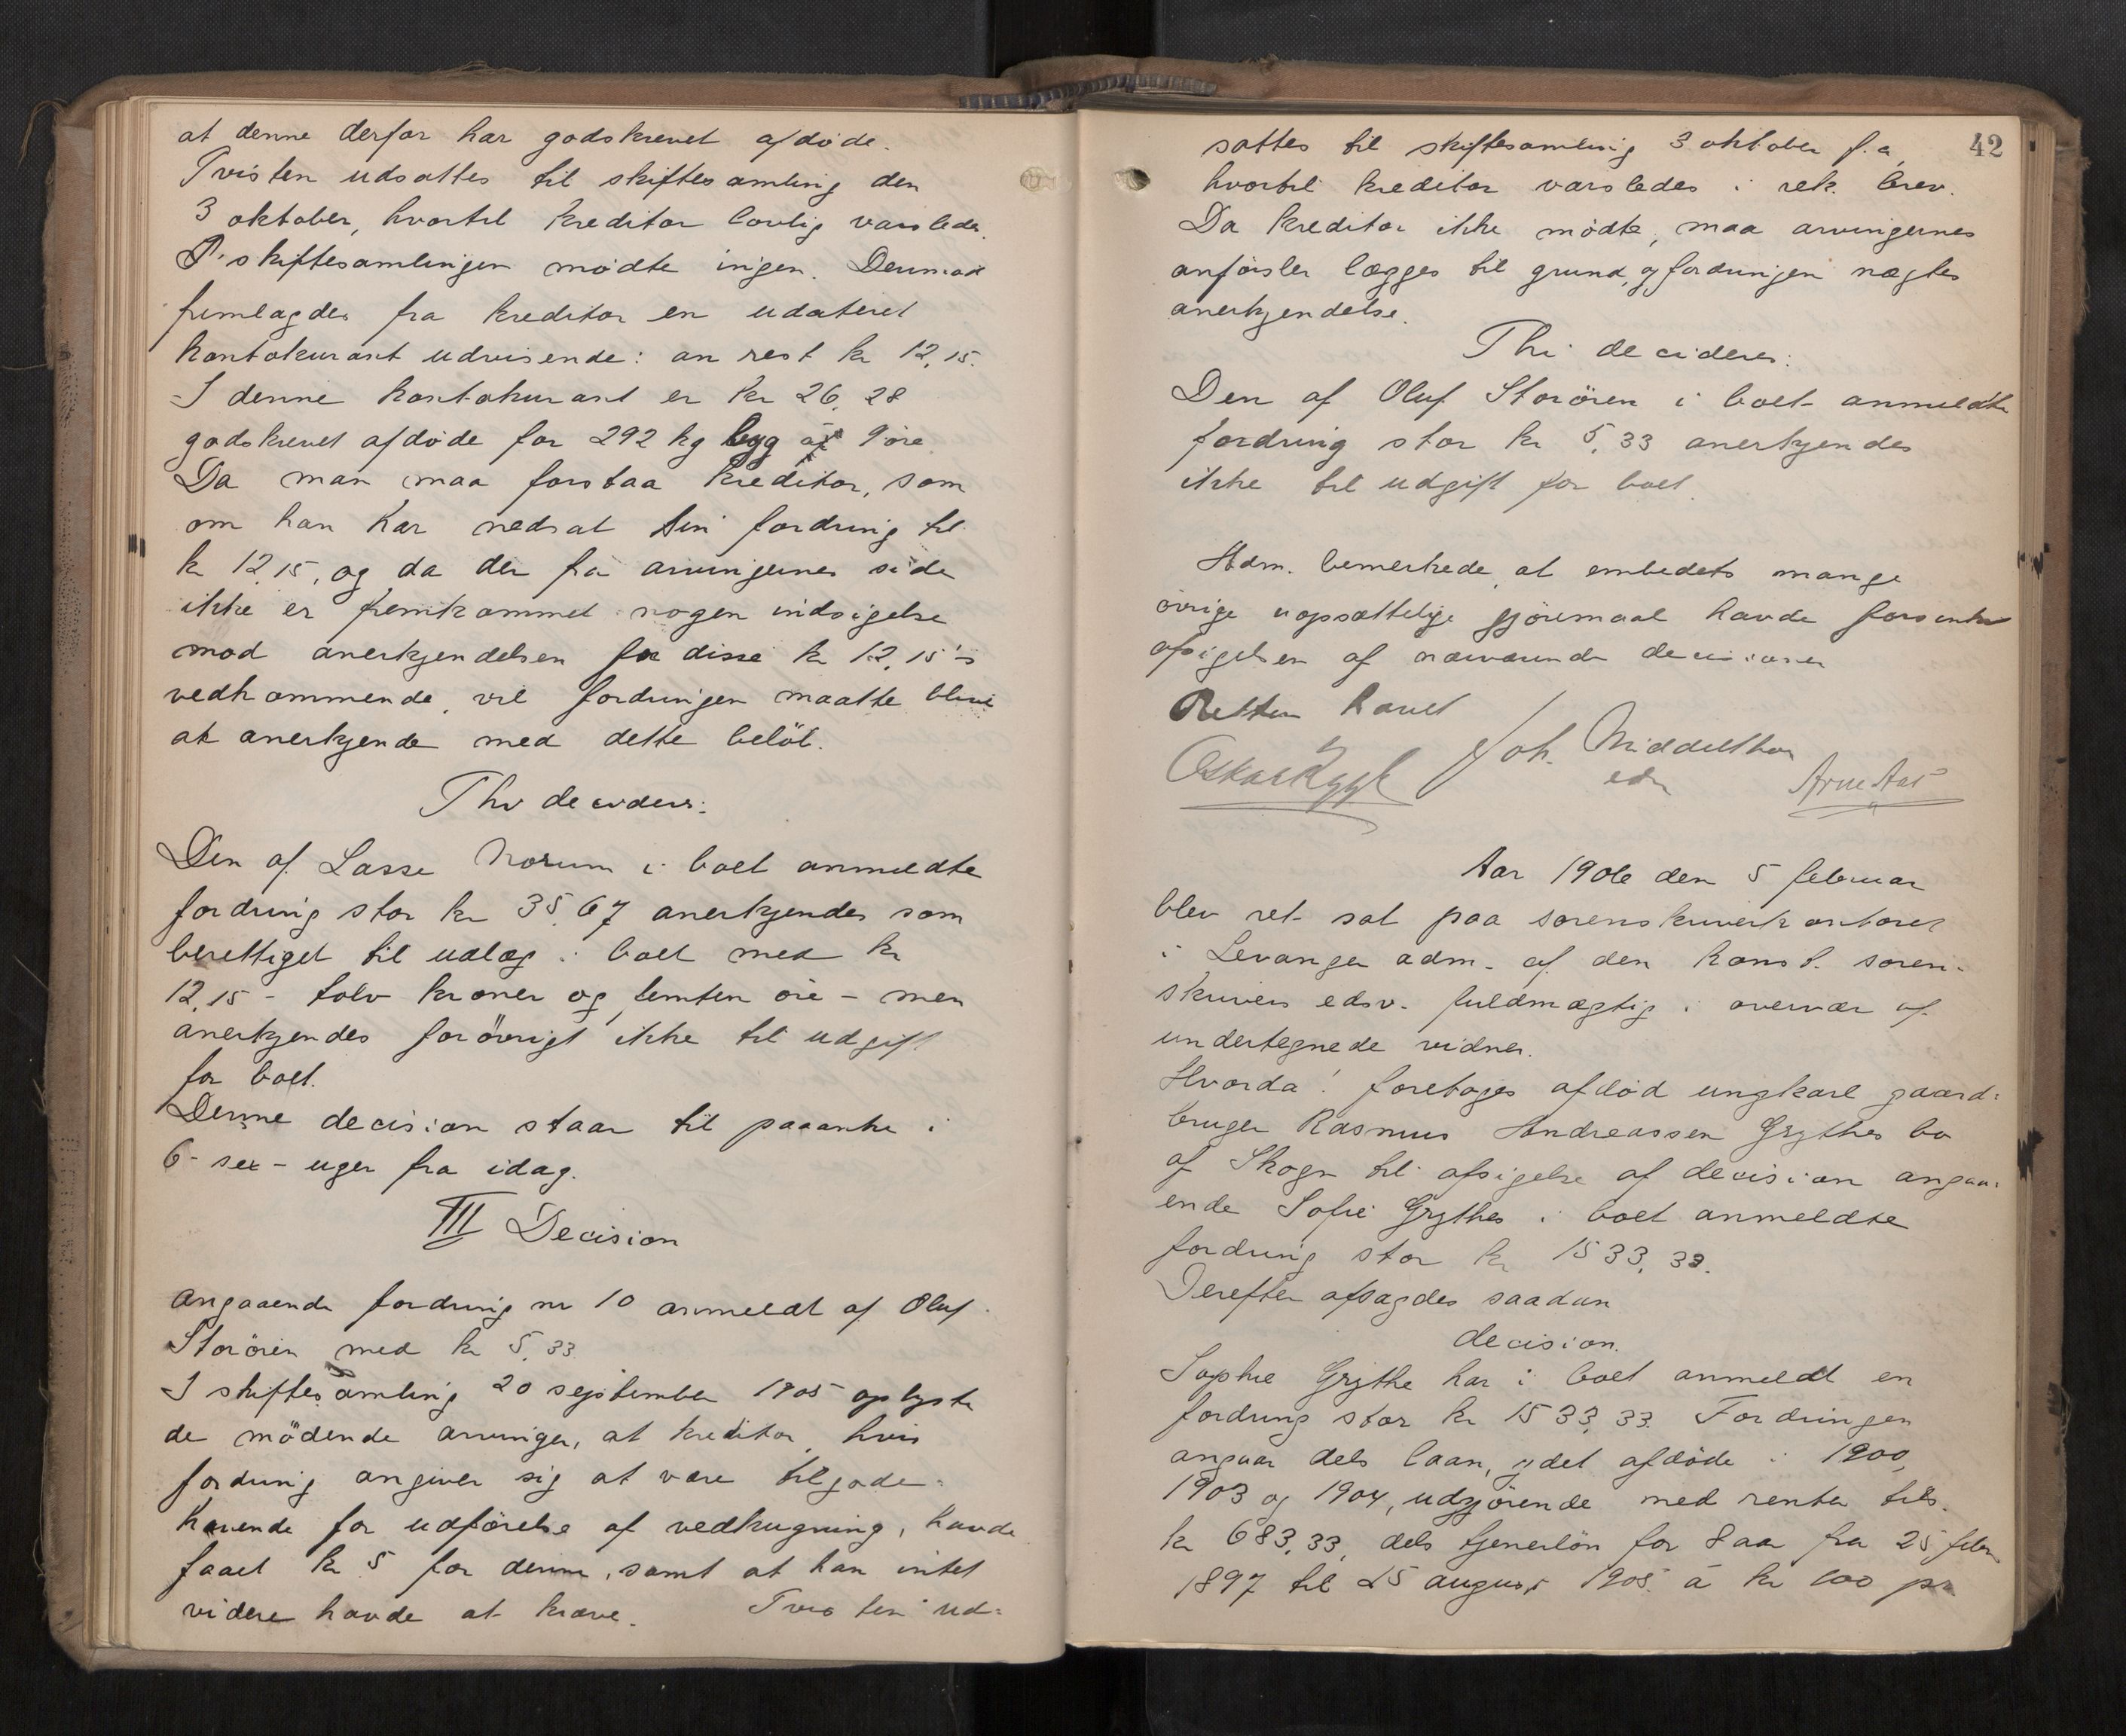 at denne derfor har godskrevet afdøde.
Tvisten udsattes til skiftesamling den
3 oktober, hvortil kreditor lovlig varsledes.
I skiftesamlingen mødte ingen. Derimod
fremlagdes fra kreditor en udateret
kontokurant udvisende: an rest kr 12,15.
I denne kontokurant er kr 26,28
godskrevet afdøde for 292 kg byg à 9 øre.
Da man maa forstaa kreditor, som
om han har nedsat sin fordring til
kr 12,15, og da der fra arvingernes side
ikke er fremkommet nogen indsigelse
mod anerkjendelsen for disse kr 12,15's
vedkommende, vil fordringen maatte blive
at anerkjende med dette beløb.
Thi decideres:
Den af Lasse Norum i boet anmeldte
fordring stor kr 35,67 anerkjendes som
berettiget til udlæg i boet med kr
12,15 - tolv kroner og femten øre - men
anerkjendes forøvrigt ikke til udgift
for boet.
Denne decision staar til paaanke i
6 - sex - uger fra idag.
III Decision
angaaende fordring nr 10 anmeldt af Oluf
Storøren med kr 5,33
I skiftesamling 20 september 1905 oplyste
de mødende arvinger, at kreditor, hvis
fordring angiver sig at være tilgode-
havende for udførelse af vedhugning, havde
faaet kr 5 for denne, samt at han intet
videre havde at kræve. Tvisten ud=
42
sattes til skiftesamling 3 oktober f. a,
hvortil kreditor varsledes i rek. brev.
Da kreditor ikke mødte, maa arvingernes
anførsler lægges til grund, og fordringen nægtes
anerkjendelse.
Thi decideres:
Den af Oluf Storøren i boet anmeldte
fordring stor kr 5,33 anerkjendes
ikke til udgift for boet.
Adm. bemerkede, at embedets mange
øvrige uopsættelige gjøremaal havde forsinket
afsigelsen af nærværende decisioner
Retten hævet
Joh. Middelthon
edsv
Oskar Rygh
Arne Aas
Aar 1906 den 5 februar
blev ret sat paa sorenskriverkontoret
i Levanger adm. af den konst. soren-
skrivers edsv. fuldmægtig i overvær af
undertegnede vidner.
Hvorda! foretoges afdød ungkarl gaard=
bruger Rasmus Andreassen Grythes bo
af Skogn til afsigelse af decision angaa=
ende Sofie Grythes i boet anmeldte
fordring stor kr 1533,33.
Derefter afsagdes saadan
decision.
Sophie Grythe har i boet anmeldt en
fordring stor kr 1533,33. Fordringen
angaar dels laan, ydet afdøde i 1900,
1903 og 1904, udgjørende med renter tils.
kr 683,33, dels tjenerløn for 8 aar fra 25 febr
1897 til 25 august 1905 à kr 100 pr